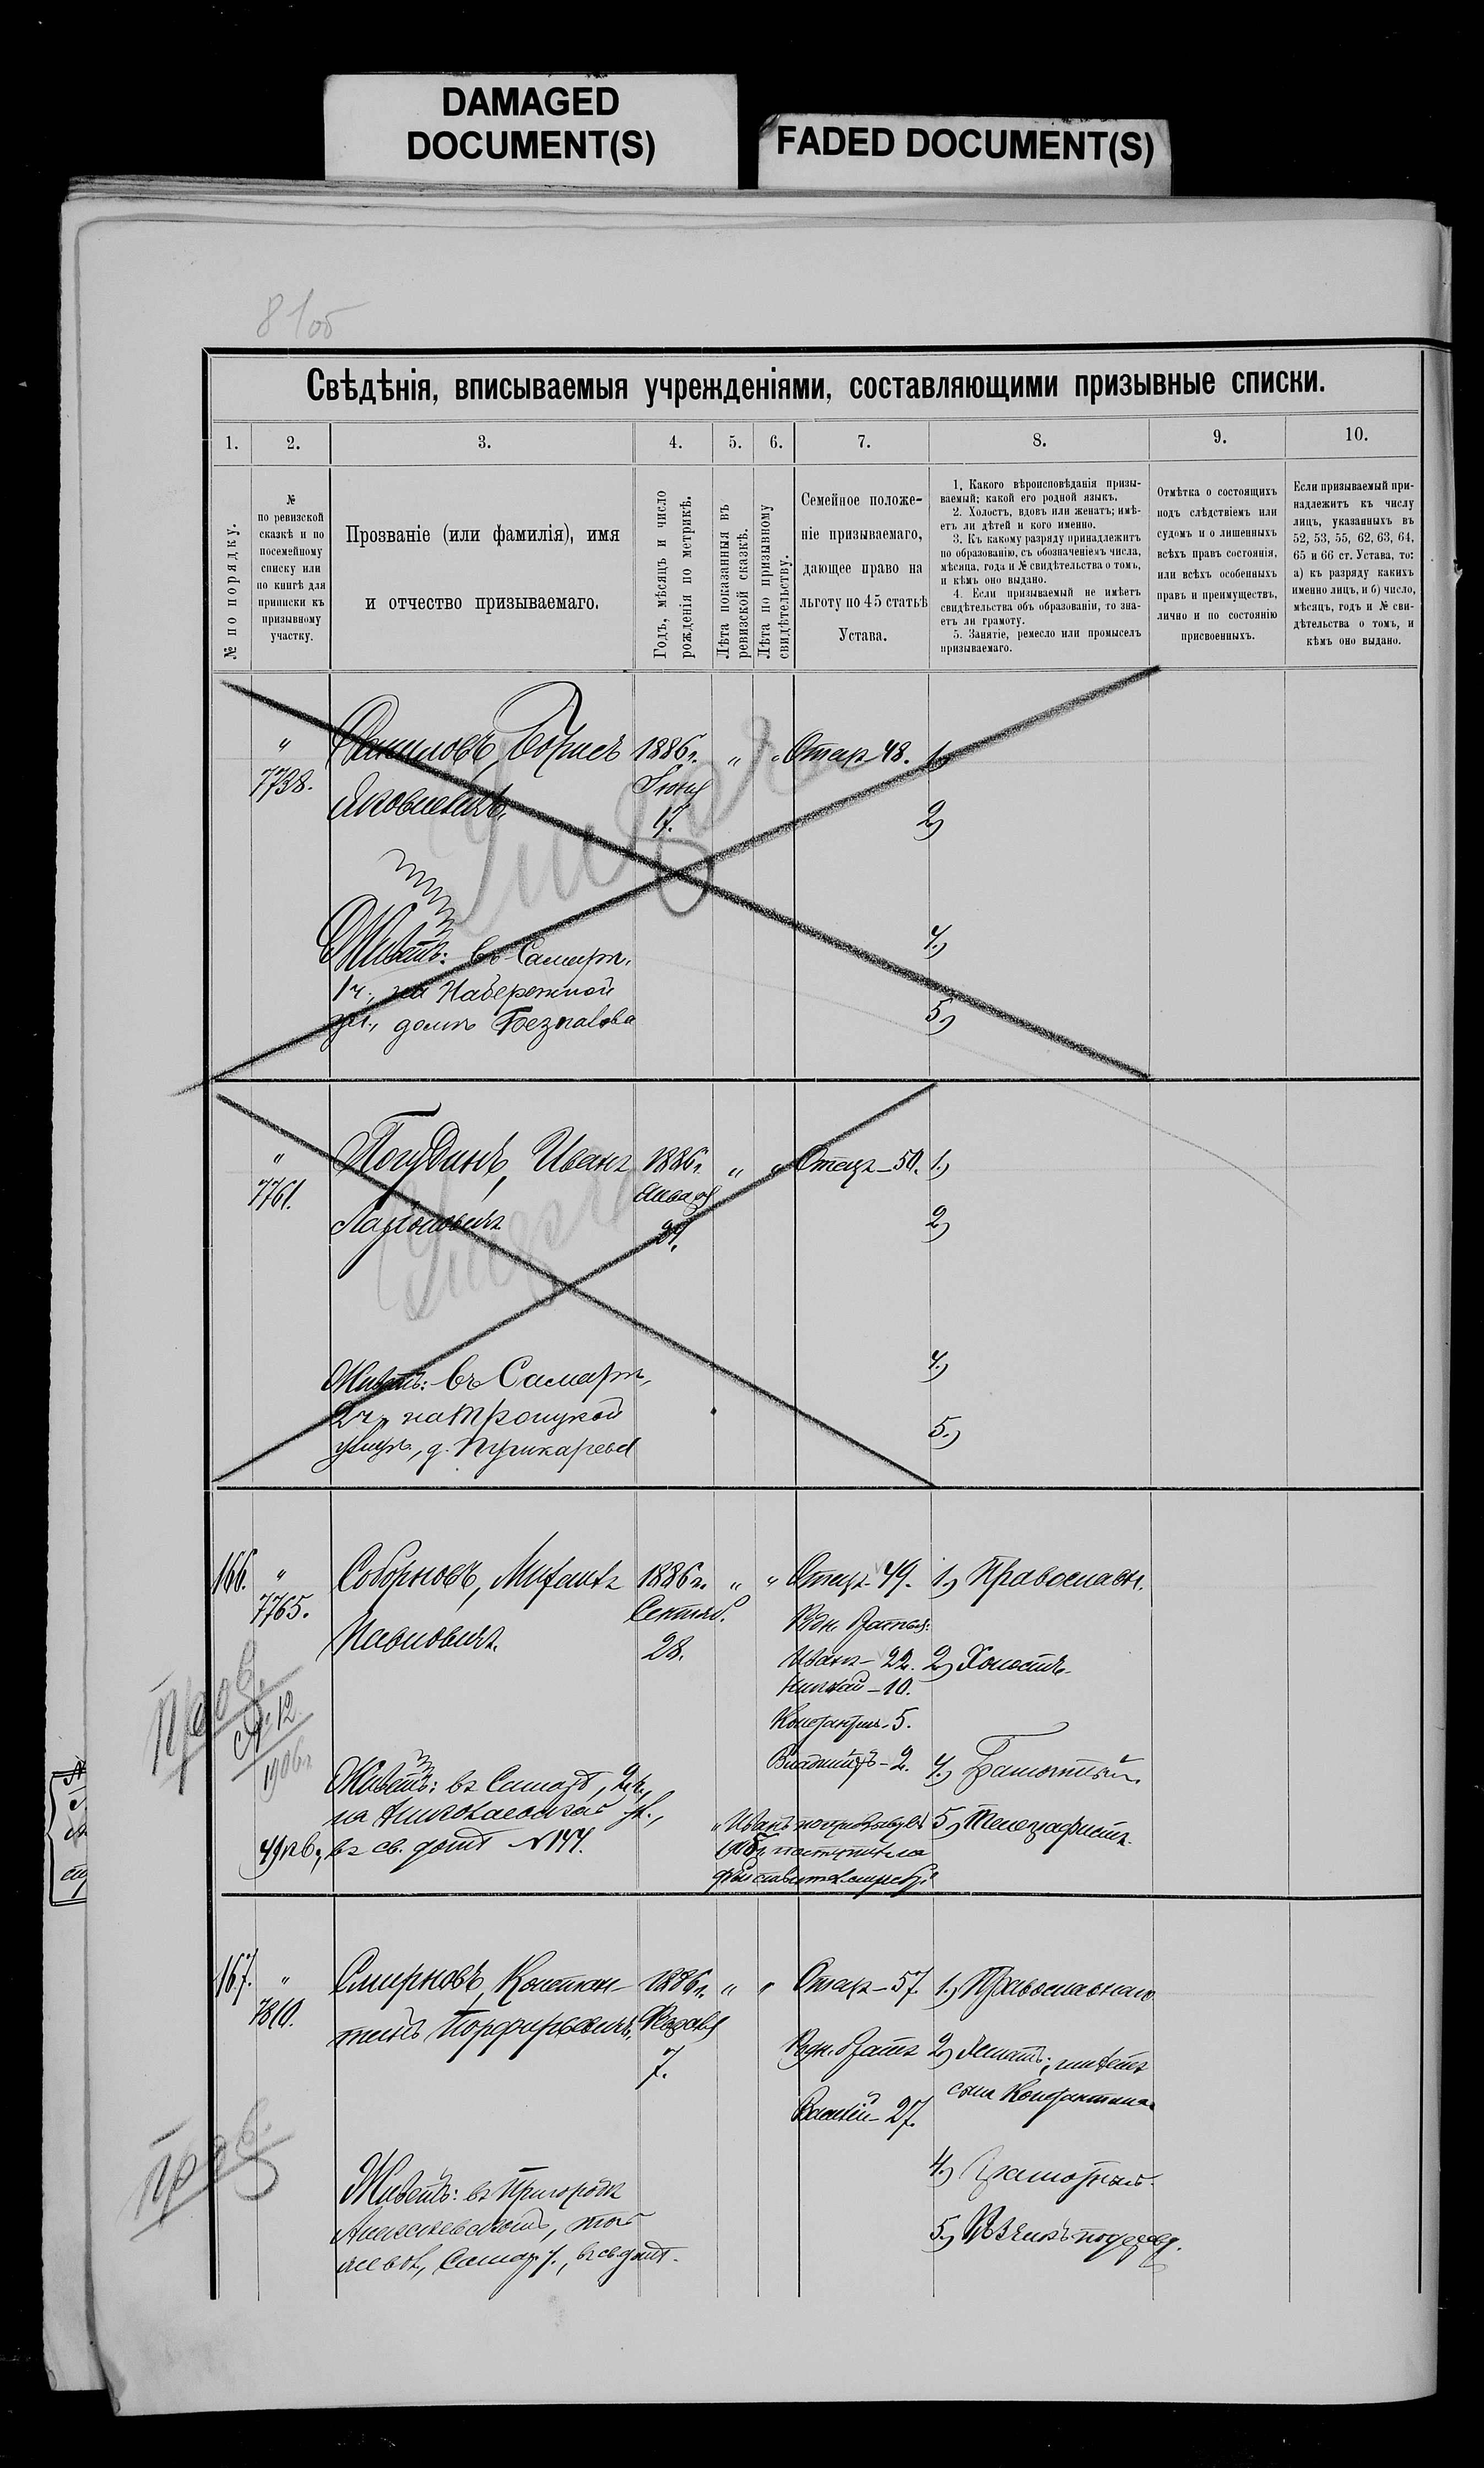 DAMAGED
DOCUMENT(S)
FADED DOCUMENT(S)
81об
Свѣдѣнія, вписываемыя учрежденіями, составляющими призывные списки.
1. 2. 3. 4. 5. 6. 7. 8. 9. 10.
№ по порядку.
№
по ревизской
сказкѣ и по
посемейному
списку или
по книгѣ для
приписки къ
призывному
участку.
Прозваніе (или фамилія), имя
и отчество призываемаго.
Годъ, мѣсяцъ и число
рожденія по метрикѣ.
Лѣта показанныя въ
ревизской сказкѣ.
Лѣта по призывному
свидѣтельству.
Семейное положе-
ніе призываемаго,
дающее право на
льготу по 45 статьѣ
Устава.
1. Какого вѣроисповѣданія призы-
ваемый; какой его родной языкъ.
2. Холостъ, вдовъ или женатъ; имѣ-
етъ ли дѣтей и кого именно.
3. Къ какому разряду принадлежитъ
по образованію, съ обозначеніемъ числа,
мѣсяца, года и № свидѣтельства о томъ,
и кѣмъ оно выдано.
4. Если призываемый не имѣетъ
свидѣтельства объ образованіи, то зна-
етъ ли грамоту.
5. Занятіе, ремесло или промыселъ
призываемаго.
Отмѣтка о состоящихъ
подъ слѣдствіемъ или
судомъ и о лишенныхъ
всѣхъ правъ состоянія,
или всѣхъ особенныхъ
правъ и преимуществъ,
лично и по состоянію
присвоенныхъ.
Если призываемый при-
надлежитъ къ числу
лицъ, указанныхъ въ
52, 53, 55, 62, 63, 64,
65 и 66 ст. Устава, то:
а) къ разряду какихъ
именно лицъ, и б) число,
мѣсяцъ, годъ и № сви-
дѣтельства о томъ, и
кѣмъ оно выдано.
" 7738.
Даниловъ, Борисъ
Яковлевичъ.
1886г.
Іюня
17.
" "
Отецъ 48.
1.)
2)
4.)
5)
Умеръ
Живетъ: въ Самарѣ,
1ч., на Набережной
ул., домъ
" 7761.
Погудинъ, Иванъ
1886г.
Января
" "
Отецъ - 50.
1.)
2)
4.)
5.)
Умеръ
Живетъ: въ Самарѣ,
2ч., на Троицкой
улицѣ, д. Пушкарева
166. " 7765.
Соборновъ, Михаилъ
Павловичъ.
1886г.
Сентяб.
28.
" "
Отецъ - 49.
Родн. братья:
Иванъ - 22.
Николай - 10.
Константинъ - 5.
Владиміръ - 2.
1.) Православн.
2) Холостъ.
4.) Грамотный.
5.) Телеграфистъ.
Пров.
№ 12
1906г.
Живетъ: въ Самарѣ, 2ч.,
на Николаевской ул.,
въ св. домѣ № 144.
"Иванъ по призыву
1905г. поступилъ на
167. " 7810.
Смирновъ, Констан-
тинъ Порфирьевичъ.
1886г.
Февраля
7.
" "
Отецъ - 57.
Родн. братъ
Василій - 27.
1.) Православнаго
2) Женатъ; имѣетъ
сына Константина
4.) Грамотный.
5.)
Пров.
Живетъ: въ Пригородѣ
Алексѣевскомъ, той
же вол., Самар. у., въ св. домѣ.